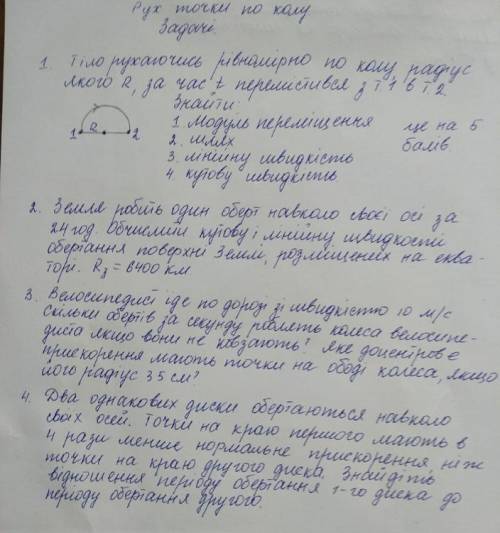 Рух точки по колу.
Задачі.
1. Тіло рухаючись рівномірно по колу радіус
якого R, за час t перемістився з т.1 в т.2.
Знайти:
1. Модуль переміщення це на 5
2. шлях балів
3. лінійну швидкість
4. кутову швидкість
1 R 2
2. Земля робить один оберт навколо своєї осі за
24 год. Обчислити кутову і лінійну швидкості
обертання поверхні Землі, розміщених на еква-
торі. Rз = 6400 км
3. Велосипедист їде по дорозі зі швидкістю 10 м/с
скільки обертів за секунду роблять колеса велосипе-
диста якщо вони не ковзають? Яке доцентрове
прискорення мають точки на ободі колеса, якщо
його радіус 35 см?
4. Два однакових диски обертаються навколо
своїх осей. Точки на краю першого мають в
4 рази менше нормальне прискорення ніж
точки на краю другого диска. Знайдіть
відношення періоду обертання 1-го диска до
періоду обертання другого.